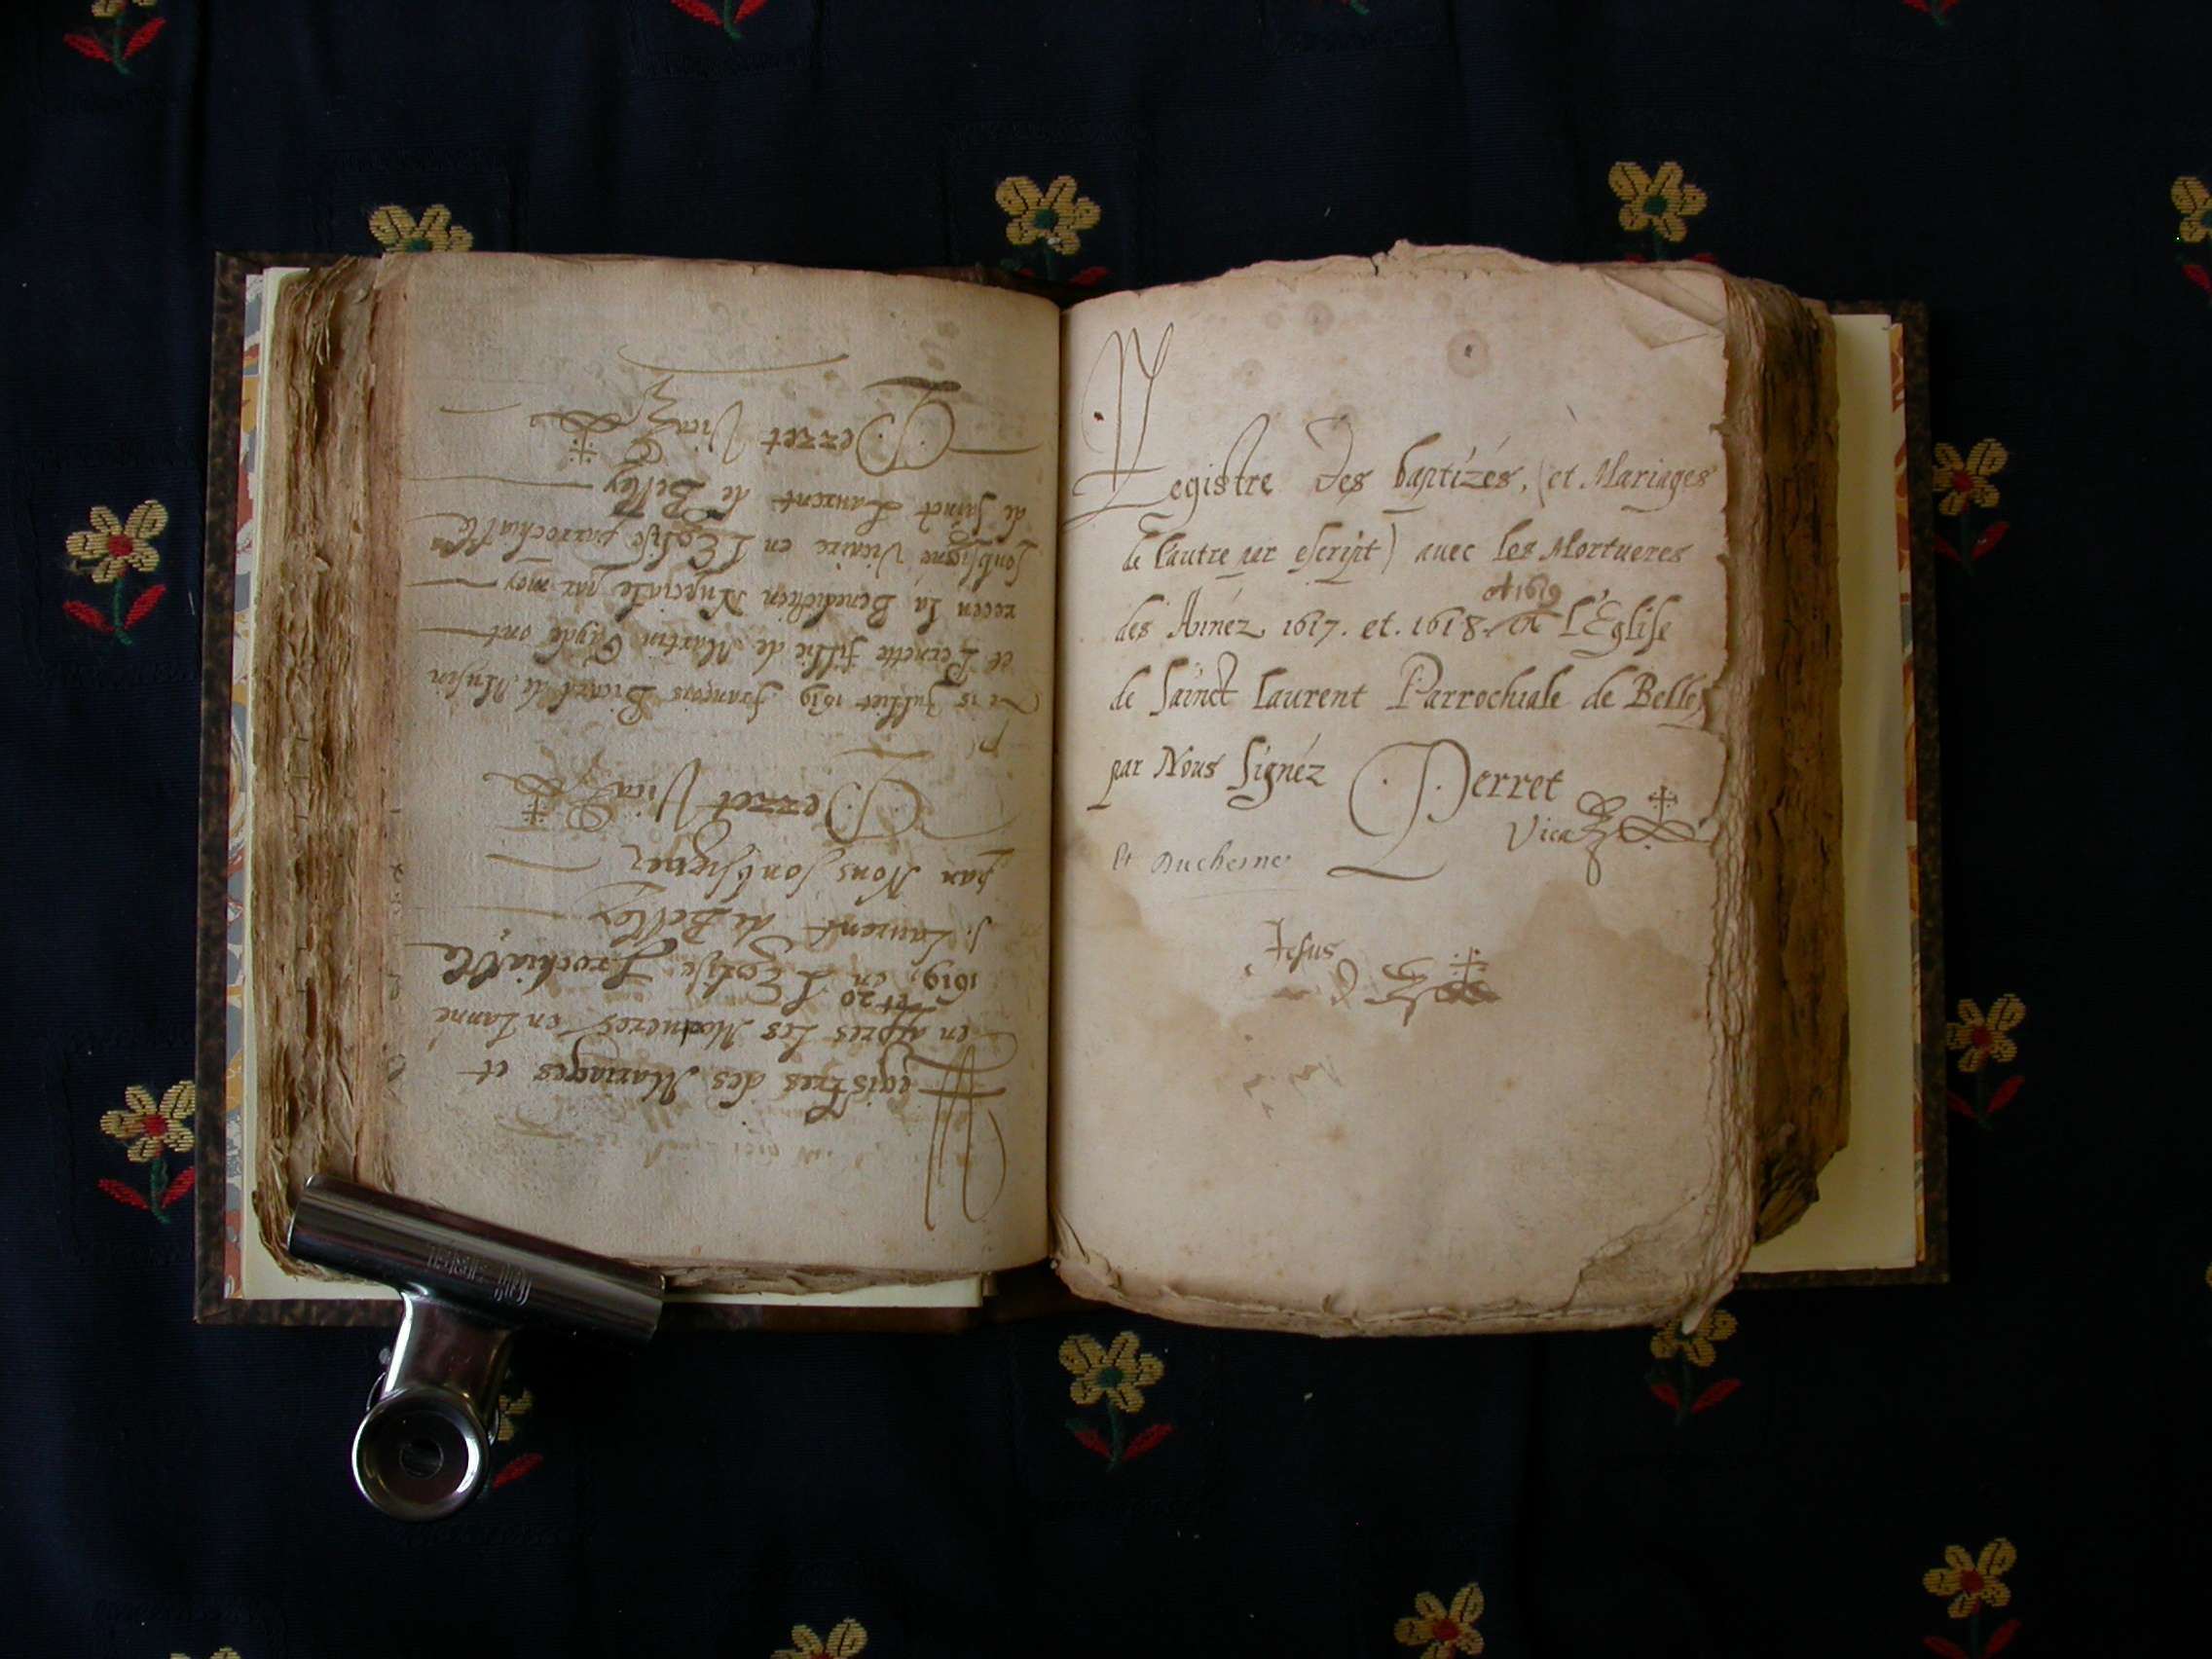 Registres des Mariages et
en apres les Mortueres en Lanné
1619, et 20 en L'Eglise Prochialle
S. Laurent de Belley
par Nous soubsigner
Perret Vica
Le 15 Julliet 1619 françois de Musin
et Pernette fillie de Martin ont
receu la Benediction Nupciale par moy
soubsigné Vicaire en L'Eglise parrochialle
de sainct Laurent de Belley
Perret Vica
Registre Des baptizés, (et Mariages
de l'autre par escript) auec les Mortueres
et 1619
des Année 1617. et. 1618. en L'Eglise
de sainct laurent Parrochiale de Belley
par Nous signéz Perret
Vica
et Duchesne
Jesus